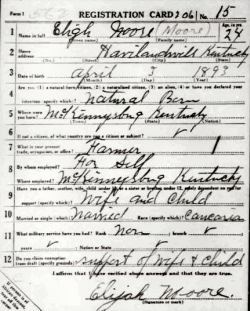 Form 1 REGISTRATION CARD No. 15
1 Name in full Eligh Moore (Moore) Age, in yrs. 24
(Given name) (Family name)
2 Home address Havilandsvill Kentucky
3 Date of birth April 189
(Month) (Day) (Year)
4 Are you (1) a natural-born citizen, (2) a naturalized citizen, (3) an alien, (4) or have you declared your
intention (specify which)? Natural Born
5 Where were you born? McKinneysburg Kentucky
6 If not a citizen, of what country are you a citizen or subject?
7 What is your present trade, occupation, or office? Farmer
8 By whom employed? For Self
Where employed? McKinneysburg Kentucky
9 Have you a father, mother, wife, child under 12, or a sister or brother under 12, solely dependent on you for
support (specify which)? Wife and Child
10 Married or single (which)? Married Race (specify which)? Caucasia
11 What military service have you had? Rank Non branch
years Nation or State
12 Do you claim exemption from draft (specify grounds)? support of Wife & Child
I affirm that I have verified above answers and that they are true.
Elijah Moore.
(Signature or mark)